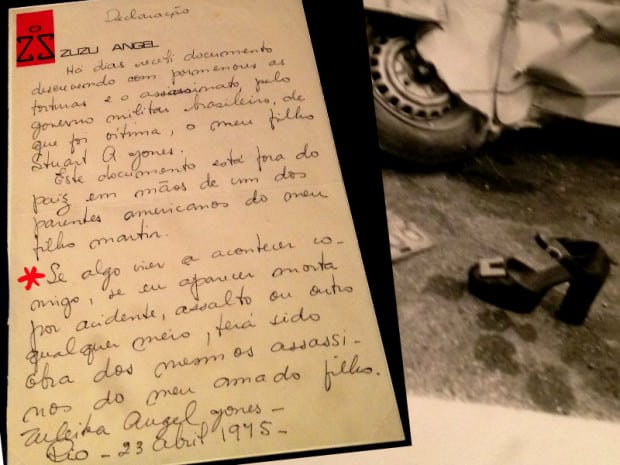 Declaração
ZUZU ANGEL
Há dias recebi documento
descrevendo com pormenores as
torturas e o assassinato pelo
governo militar brasileiro, de
que foi vítima, o meu filho
Stuart A. Jones.
Este documento está fora do
paiz em mãos de um dos
parentes americanos do meu
filho martir.
* Se algo vier a acontecer co-
migo, se eu aparecer morta
por acidente, assalto ou outro
qualquer meio, terá sido
obra dos mesmos assassi-
nos do meu amado filho.
Zuleika Angel Jones -
Rio - 23 abril 1975 -